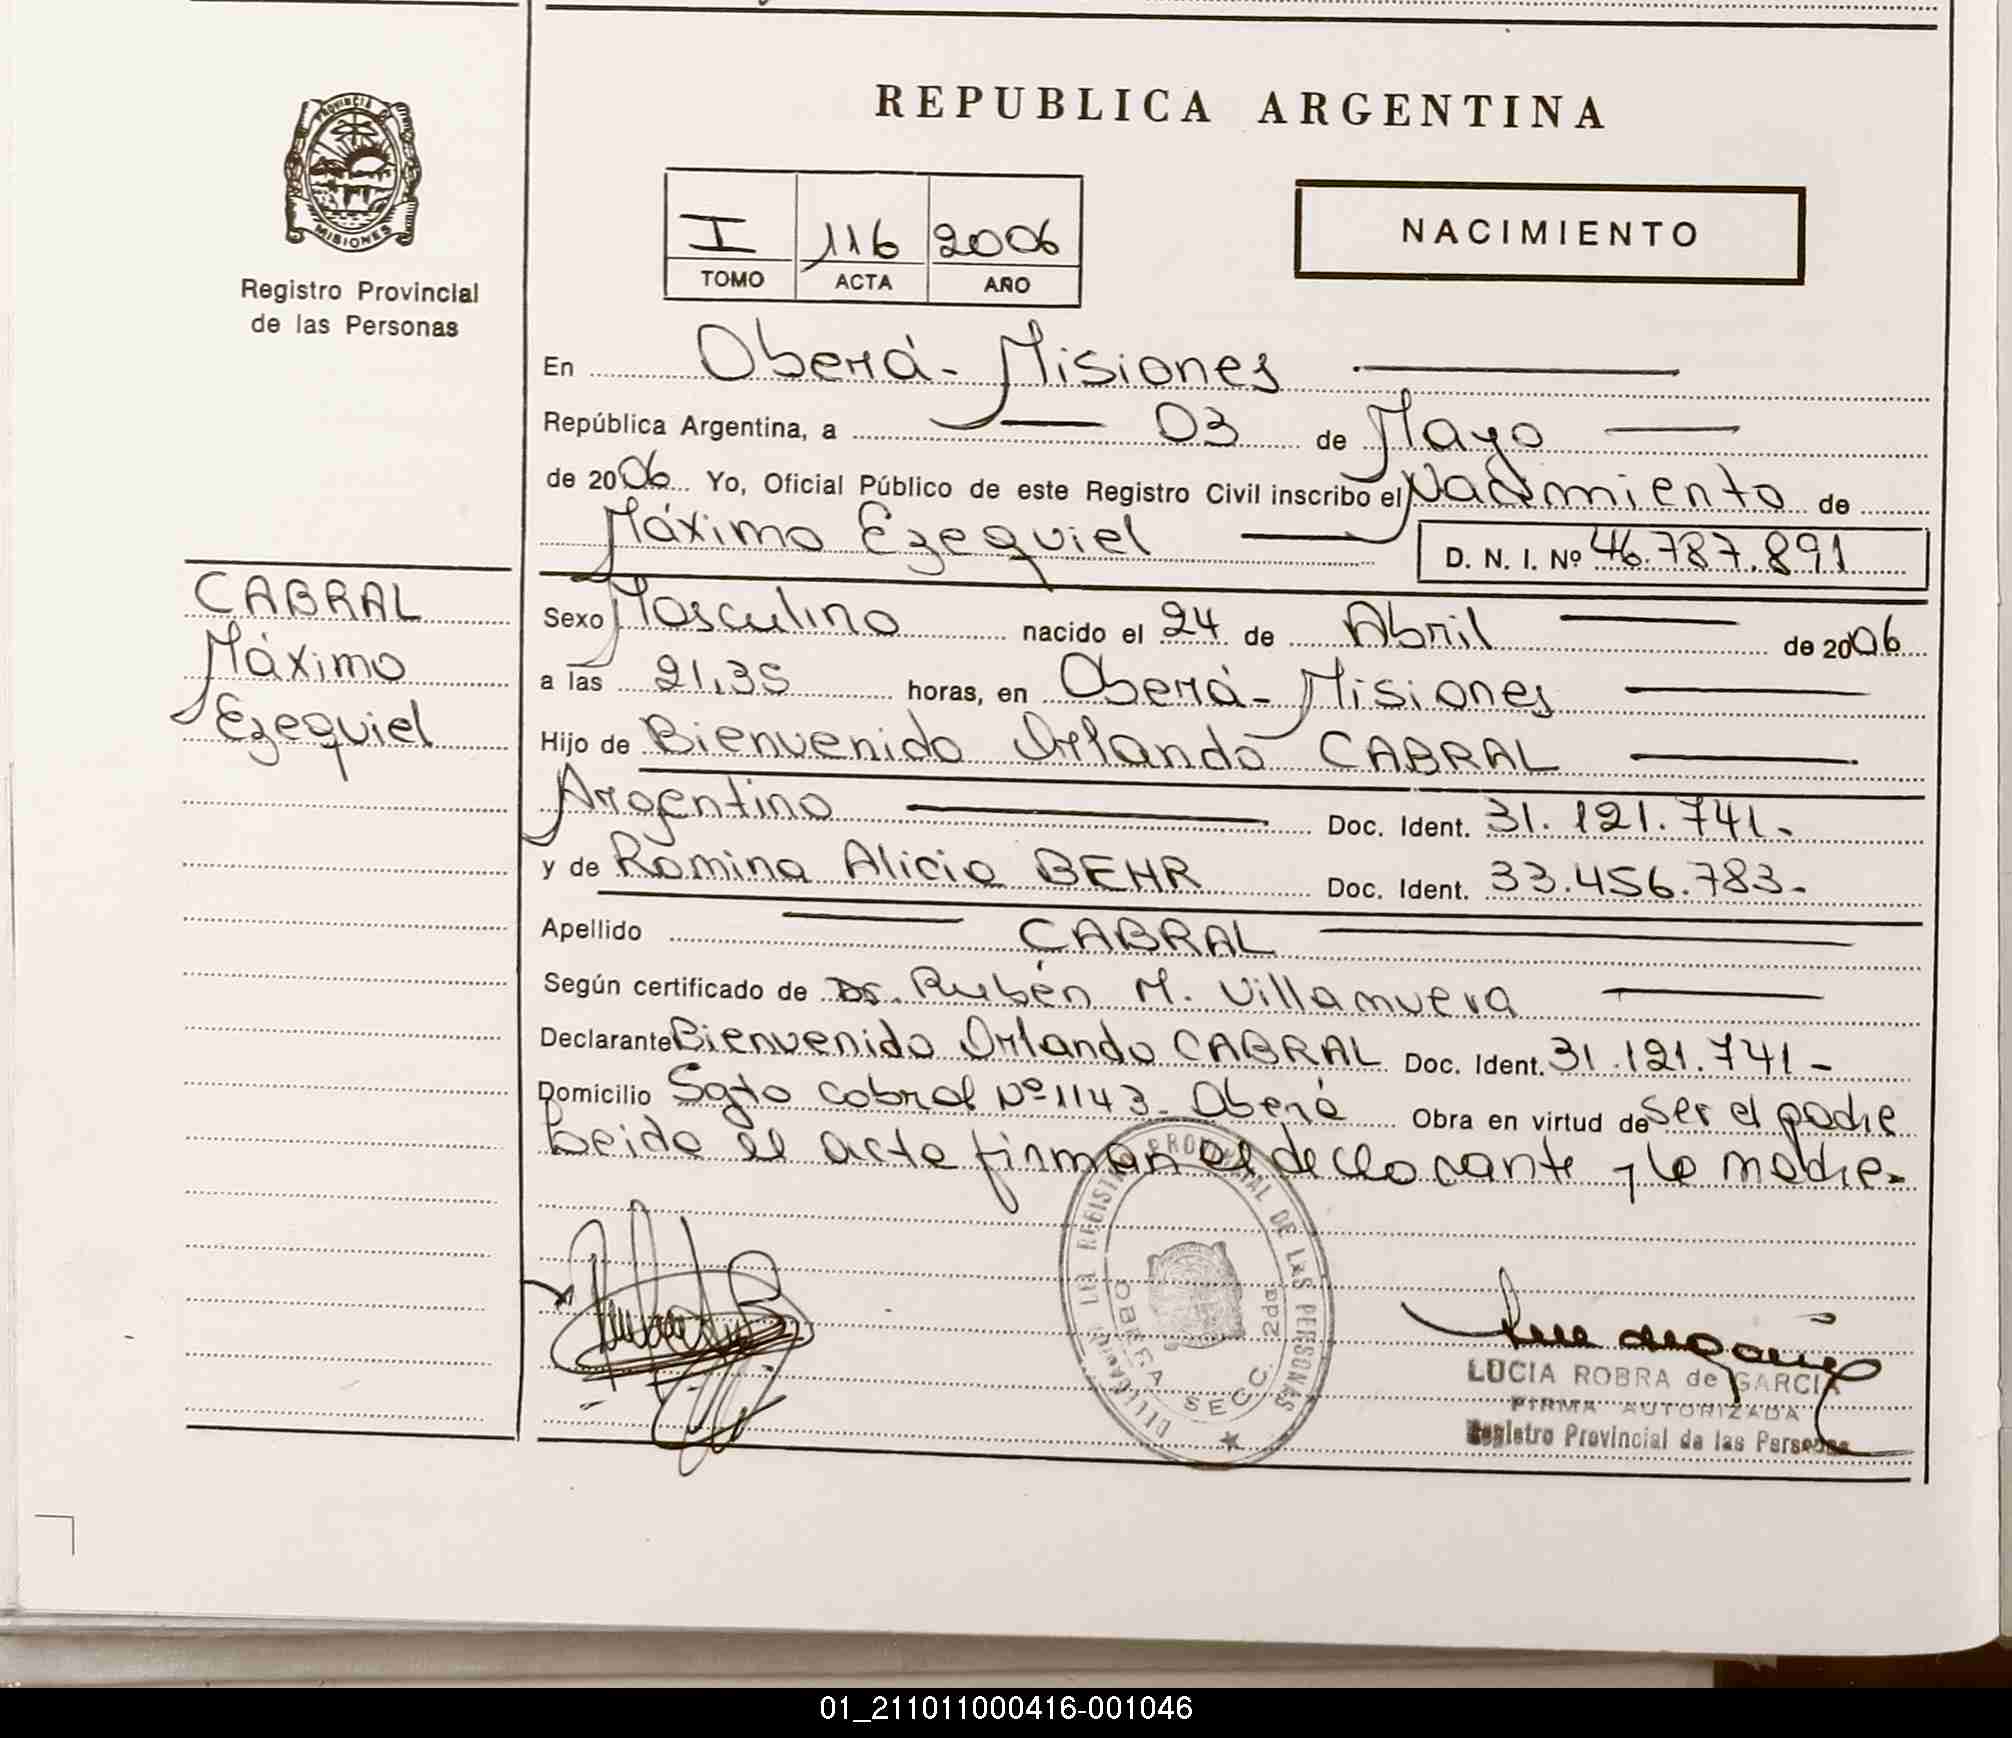 REPUBLICA ARGENTINA
PROVINCIA
MISIONES
Registro Provincial
de las Personas
I 116 2006
TOMO ACTA AÑO
NACIMIENTO
En Oberá - Misiones
República Argentina, a 03 de Mayo
de 2006 Yo, Oficial Público de este Registro Civil inscribo el Nacimiento de
Máximo Ezequiel D. N. I. Nº 46.787.891
CABRAL
Máximo
Ezequiel
Sexo Masculino nacido el 24 de Abril de 2006
a las 21,35 horas, en Oberá - Misiones
Hijo de Bienvenido Orlando CABRAL
Argentino Doc. Ident. 31.121.741.
y de Romina Alicia BEHR Doc. Ident. 33.456.783-
Apellido CABRAL
Según certificado de Dr. Rubén M. Villanueva
Declarante Bienvenido Orlando CABRAL Doc. Ident. 31.121.741-
Domicilio Sgto Cabral Nº 1143- Oberá Obra en virtud de ser el padre
Leida el acta firman el declarante y la madre.
REGISTRO PROVINCIAL DE LAS PERSONAS
OBERA SECC. 2da
LUCIA ROBRA de GARCIA
FIRMA AUTORIZADA
Registro Provincial de las Personas
01_211011000416-001046